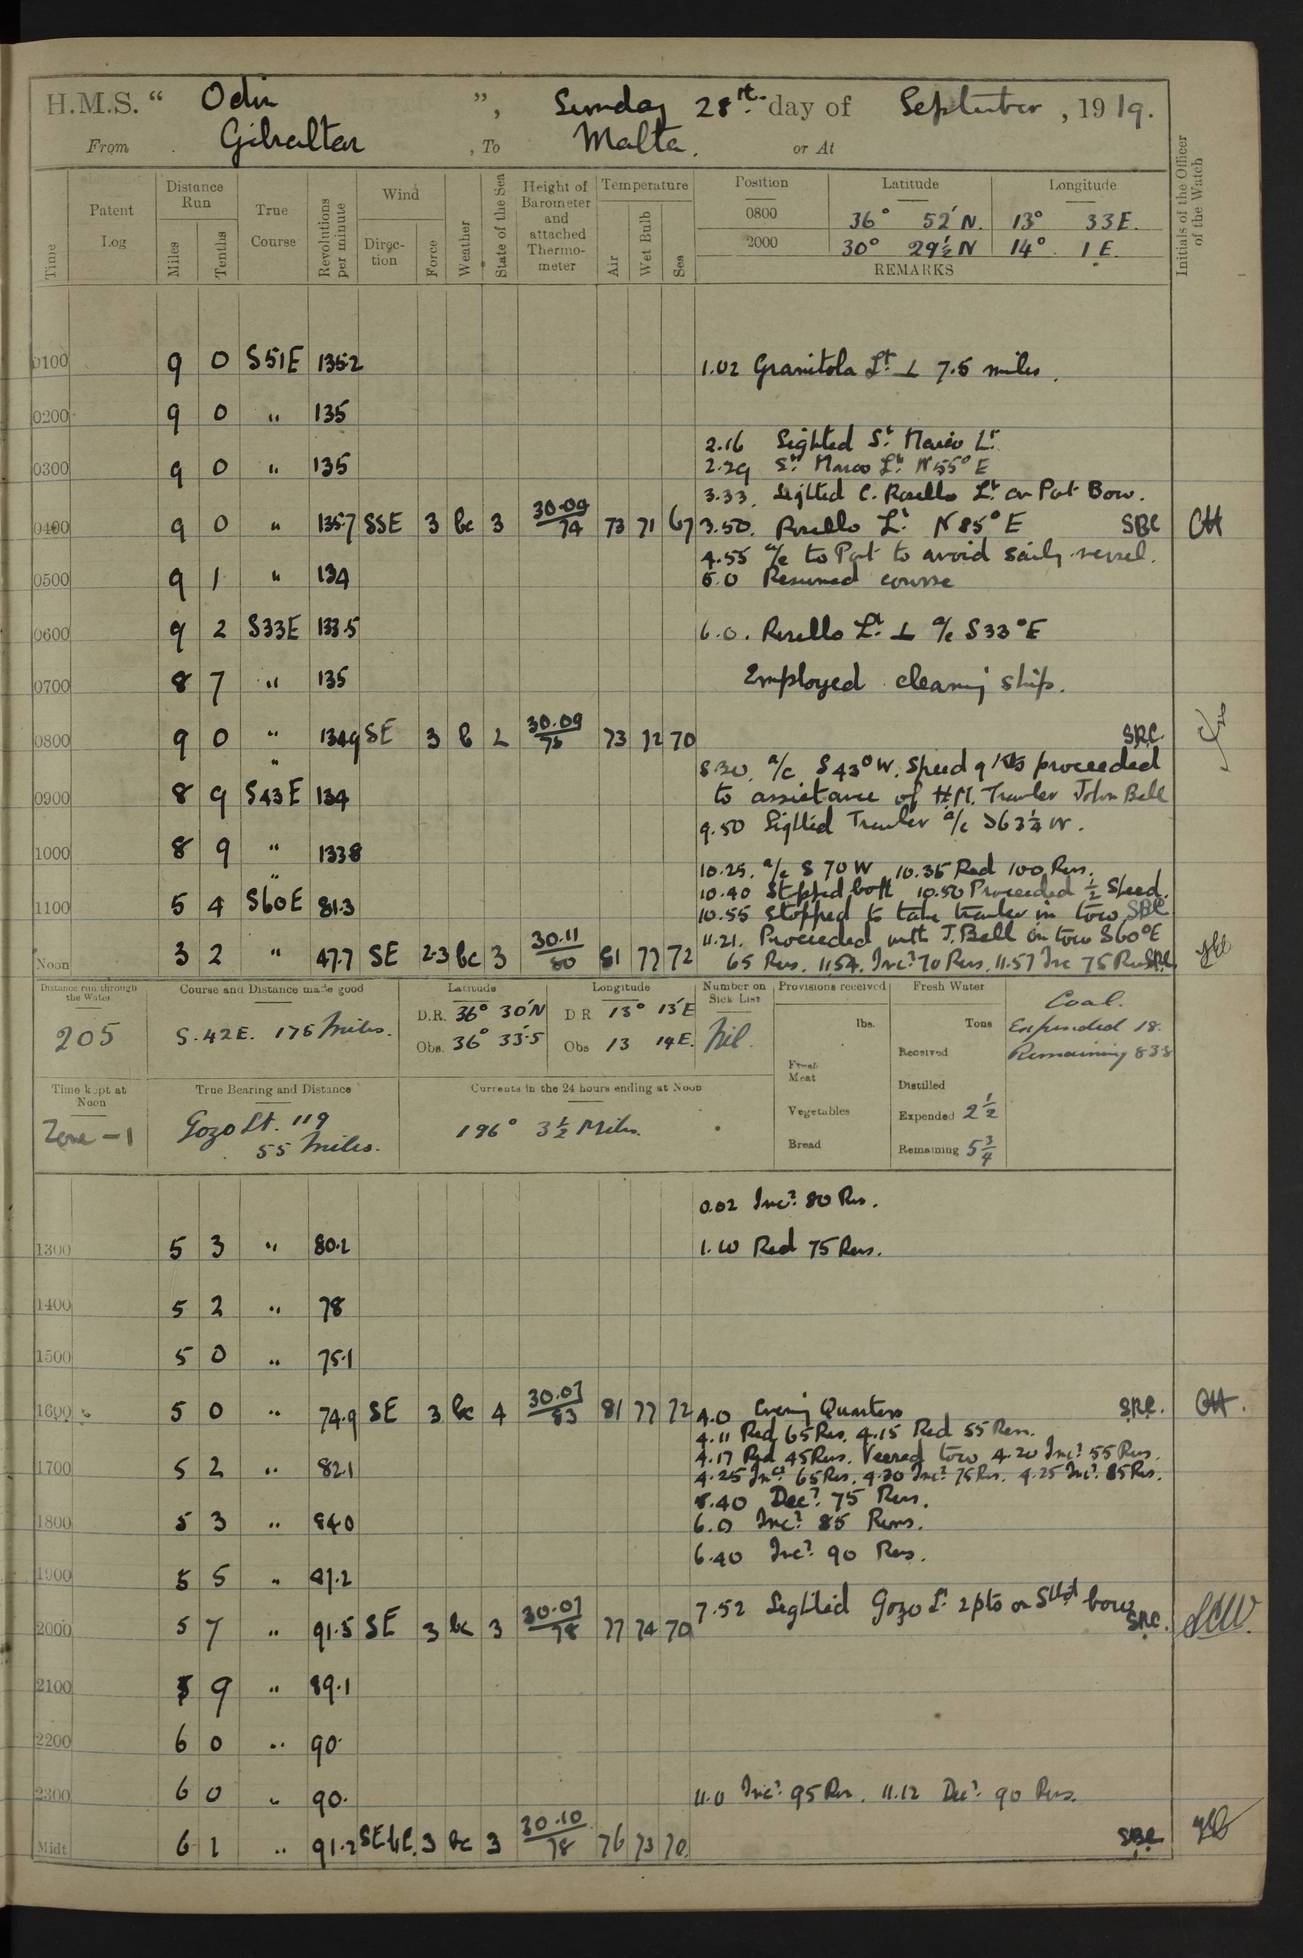 H.M.S. " Odin ", Sunday 28th day of September, 1919.
From Gibraltar, To Malta. or At
Time
Patent Log
Distance Run
Miles
Tenths
True Course
Revolutions per minute
Wind
Direction
Force
Weather
State of the Sea
Height of Barometer and attached Thermometer
Temperature
Air
Wet Bulb
Sea
Position Latitude Longitude
0800 36° 52' N. 13° 33 E.
2000 30° 29½ N 14° 1 E.
REMARKS
Initials of the Officer of the Watch
0100 9 0 S51E 135.2 1.02 Granitola Lt ⊥ 7.5 miles.
0200 9 0 " 135
2.16 Sighted St Marco Lt
0300 9 0 " 135 2.29 St Marco Lt N55°E
3.33. Sighted C. Rosello Lt on Port Bow.
0400 9 0 " 135.7 SSE 3 bc 3 30.09/74 73 71 67 3.50. Rosello Lt N 85° E SBC
4.55 a/c to Port to avoid sailg vessel.
0500 9 1 " 134 5.0 Resumed course
0600 9 2 S33E 133.5 6.0. Rosello Lt ⊥ a/c S33°E
0700 8 7 " 135 Employed cleaning ship.
0800 9 0 " 134.9 SE 3 b 2 30.09/75 73 72 70 SRC
8.30. a/c S 43° W. Speed 9 Kts proceeded
0900 8 9 S43E 134 to assistance of H.M. Trawler John Bell
9.50 Sighted Trawler a/c S63¼ W.
1000 8 9 " 133.8
10.25. a/c S 70 W 10.35 Red 100 Revs.
10.40 Stopped both 10.50 Proceeded ½ Speed.
1100 5 4 S60E 81.3 10.55 Stopped to take trawler in tow SBC
11.21. Proceeded with J. Bell in tow S60°E
Noon 3 2 " 47.7 SE 2.3 bc 3 30.11/80 81 77 72 65 Revs. 11.54. Incd 70 Revs. 11.57 Inc 75 Revs SRC
Distance run through the Water
205
Course and Distance made good
S. 42 E. 176 Miles.
Latitude
D.R. 36° 30' N
Obs. 36° 33'.5
Longitude
D R 13° 13' E
Obs 13 14 E.
Number on Sick List
Nil
Provisions received
lbs.
Fresh Meat
Vegetables
Bread
Fresh Water
Tons
Received
Distilled
Expended 2½
Remaining 5¾
Coal.
Expended 18.
Remaining 838
Time kept at Noon
Zone -1
True Bearing and Distance
Gozo Lt. 119
55 Miles.
Currents in the 24 hours ending at Noon
196° 3½ Miles.
0.02 Incd 80 Revs.
1300 5 3 " 80.2 1.10 Red 75 Revs.
1400 5 2 " 78
1500 5 0 " 75.1
1600 5 0 " 74.9 SE 3 bc 4 30.07/83 81 77 72 4.0 Evening Quarters SRC.
4.11 Red 65 Revs. 4.15 Red 55 Revs.
4.17 Red 45 Revs. Veered tow 4.20 Incd 55 Revs.
1700 5 2 " 82.1 4.25 Incd 65 Revs. 4.30 Incd 75 Revs. 4.25 Incd 85 Revs.
5.40 Decd 75 Revs.
1800 5 3 " 84.0 6.0 Incd 85 Revs.
6.40 Incd 90 Revs.
1900 5 5 " 87.2
7.52 Sighted Gozo Lt 2pts on Stbd bow
2000 5 7 " 91.5 SE 3 bc 3 30.07/78 77 74 70 SRC.
2100 5 9 " 89.1
2200 6 0 " 90.
2300 6 0 " 90. 11.0 Incd 95 Revs. 11.12 Decd 90 Revs.
Midt 6 1 " 91.2 3 bc 3 30.10/78 76 73 70. SBC